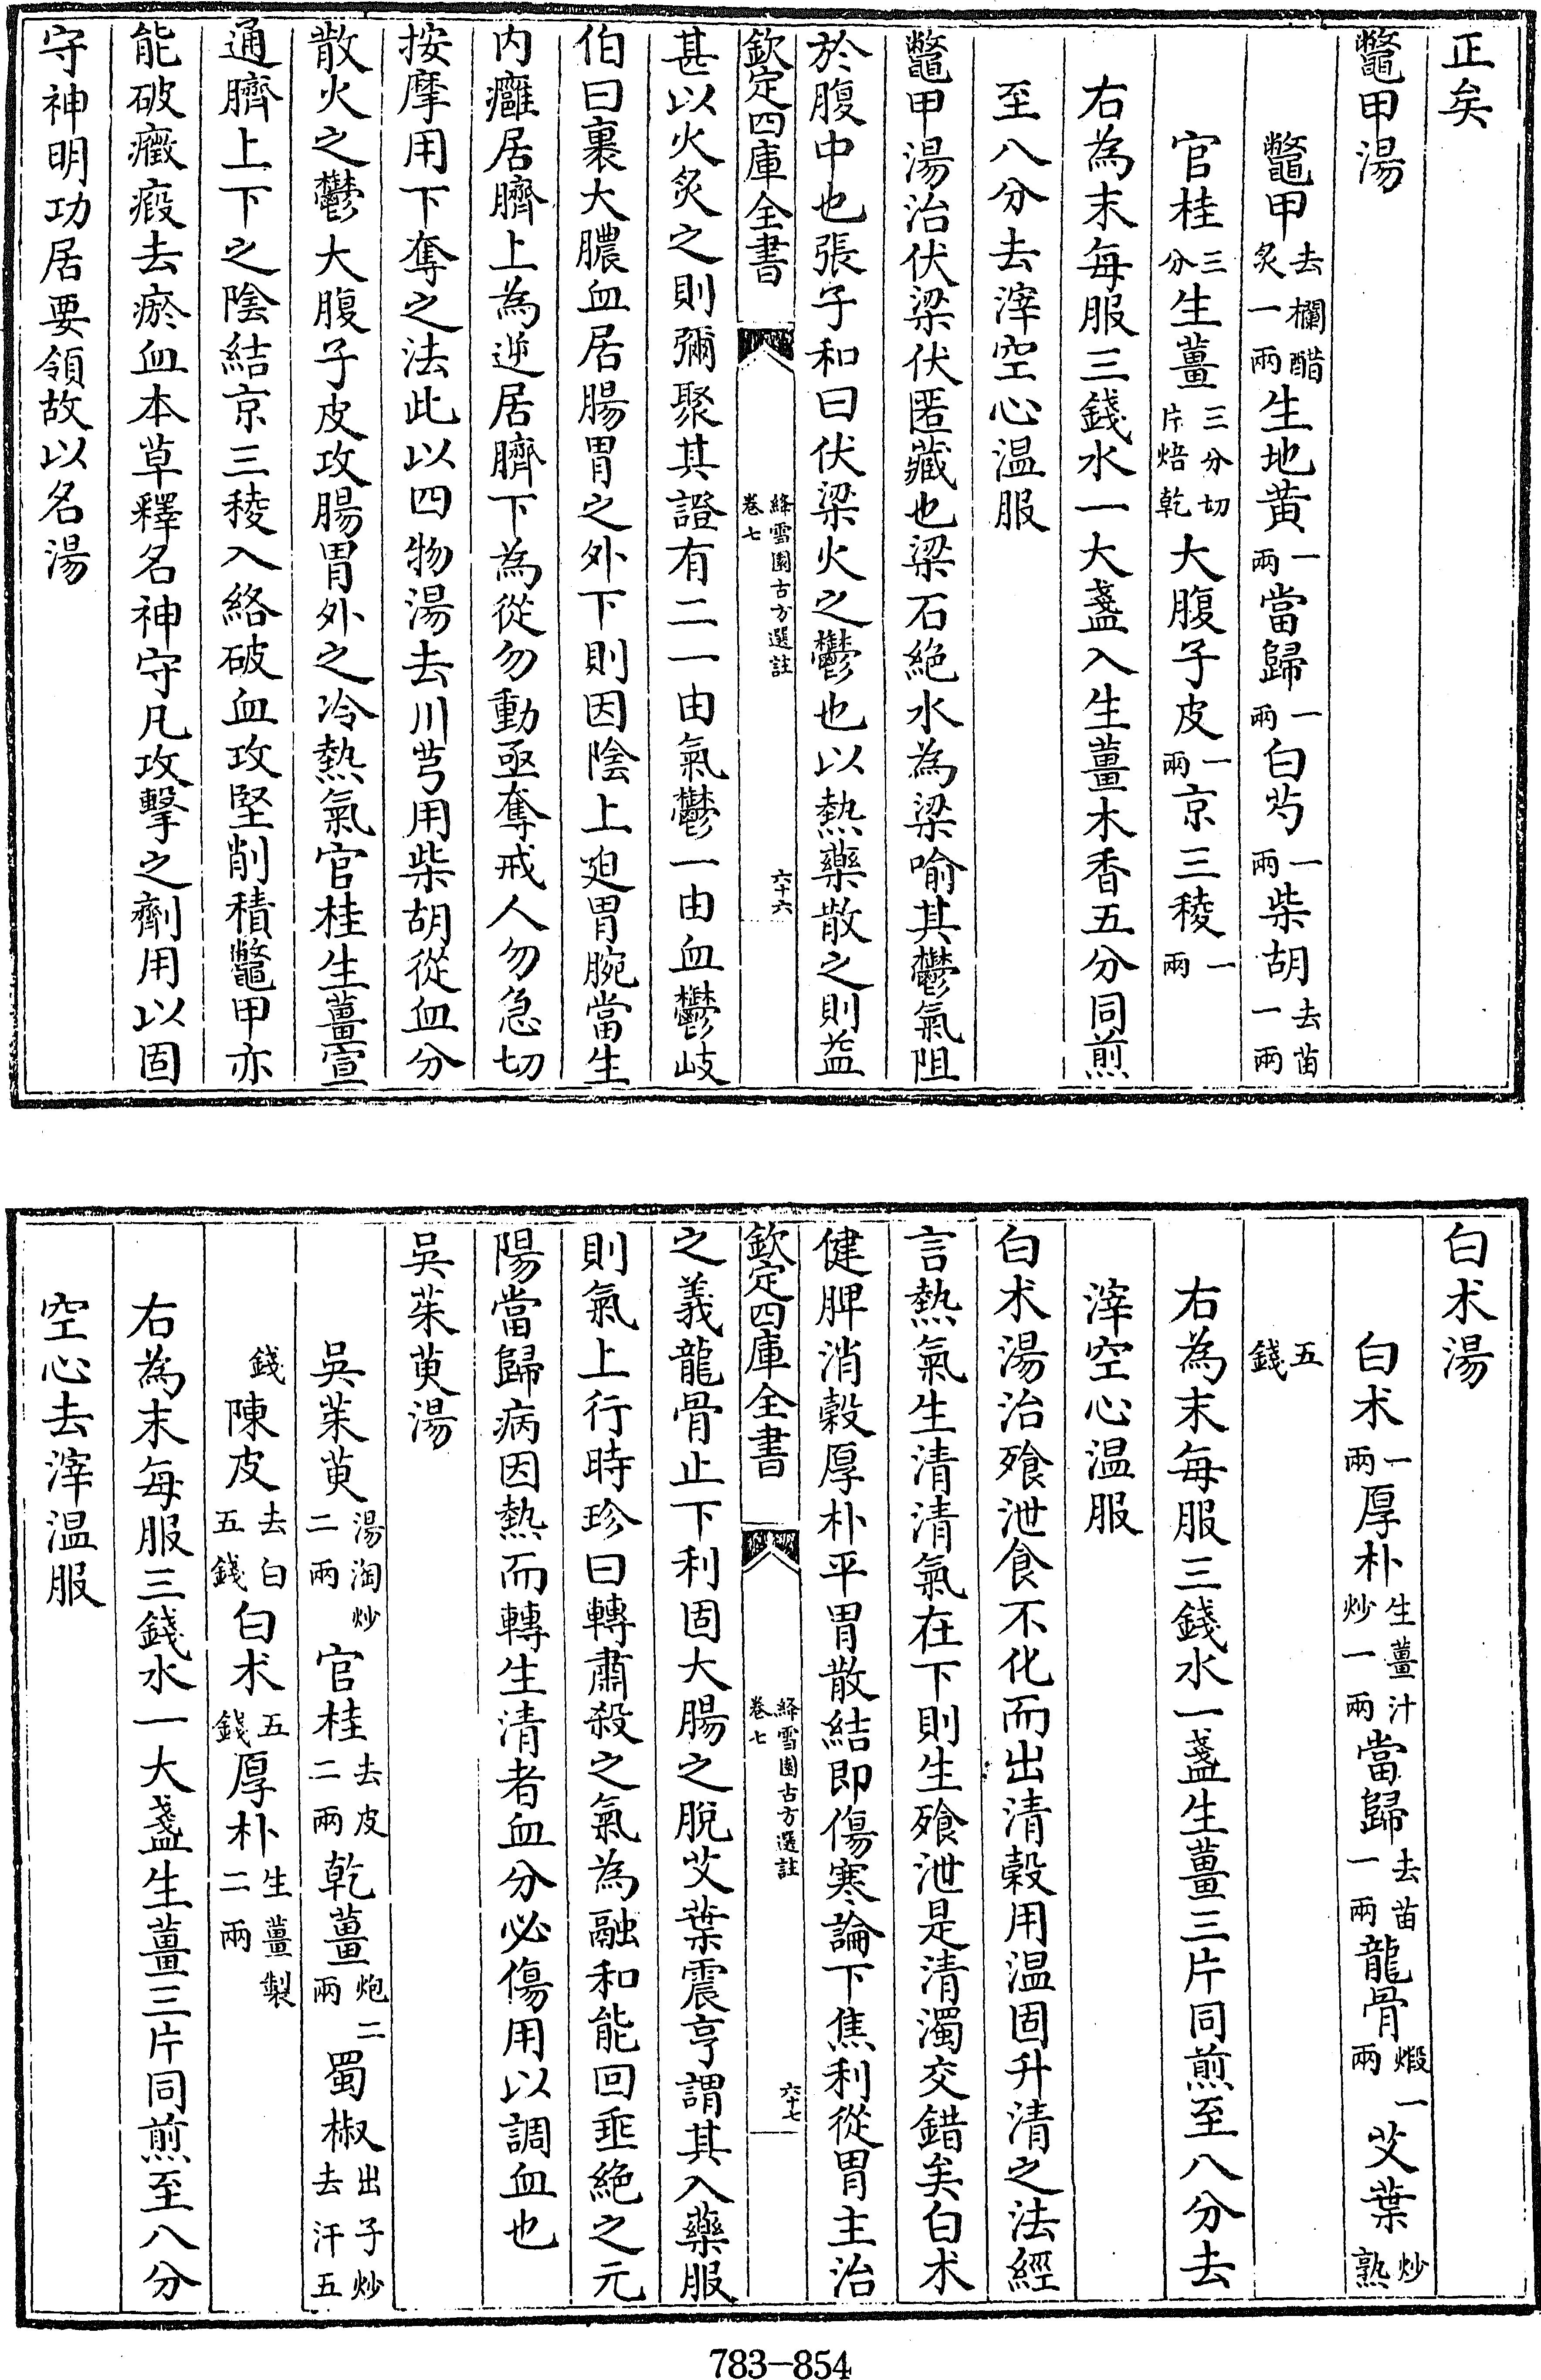 正矣
鼈甲湯
鼈甲去欄醋炙一兩生地黃一兩當歸一兩白芍一兩柴胡去苗一兩
官桂三分生薑三分切片焙乾大腹子皮一兩京三稜一兩
右為末每服三錢水一大盞入生薑木香五分同煎
至八分去滓空心温服
鼈甲湯治伏梁伏匿藏也梁石絶水為梁喻其鬱氣阻
於腹中也張子和曰伏梁火之鬱也以熱藥散之則益
欽定四庫全書 絳雪園古方選註卷七 六十六
甚以火炙之則彌聚其證有二一由氣鬱一由血鬱岐
伯曰裹大膿血居腸胃之外下則因陰上廹胃腕當生
内癰居臍上為逆居臍下為從勿動亟奪戒人勿急切
按摩用下奪之法此以四物湯去川芎用柴胡從血分
散火之鬱大腹子皮攻腸胃外之冷熱氣官桂生薑宣
通臍上下之陰結京三稜入絡破血攻堅削積鼈甲亦
能破癥瘕去瘀血本草釋名神守凡攻擊之劑用以固
守神明功居要領故以名湯
白朮湯
白朮一兩厚朴生薑汁炒一兩當歸去苗一兩龍骨煅一兩艾葉炒熟
五錢
右為末每服三錢水一盞生薑三片同煎至八分去
滓空心温服
白朮湯治飱泄食不化而出清穀用温固升清之法經
言熱氣生清清氣在下則生飱泄是清濁交錯矣白朮
健脾消穀厚朴平胃散結即傷寒論下焦利從胃主治
欽定四庫全書 絳雪園古方選註卷七 六十七
之義龍骨止下利固大腸之脫艾葉震亨謂其入藥服
則氣上行時珍曰轉肅殺之氣為融和能回垂絶之元
陽當歸病因熱而轉生清者血分必傷用以調血也
吳茱萸湯
吳茱萸湯淘炒二兩官桂去皮二兩乾薑炮二兩蜀椒出子炒去汗五
錢陳皮去白五錢白朮五錢厚朴生薑製二兩
右為末每服三錢水一大盞生薑三片同煎至八分
空心去滓温服
783-854